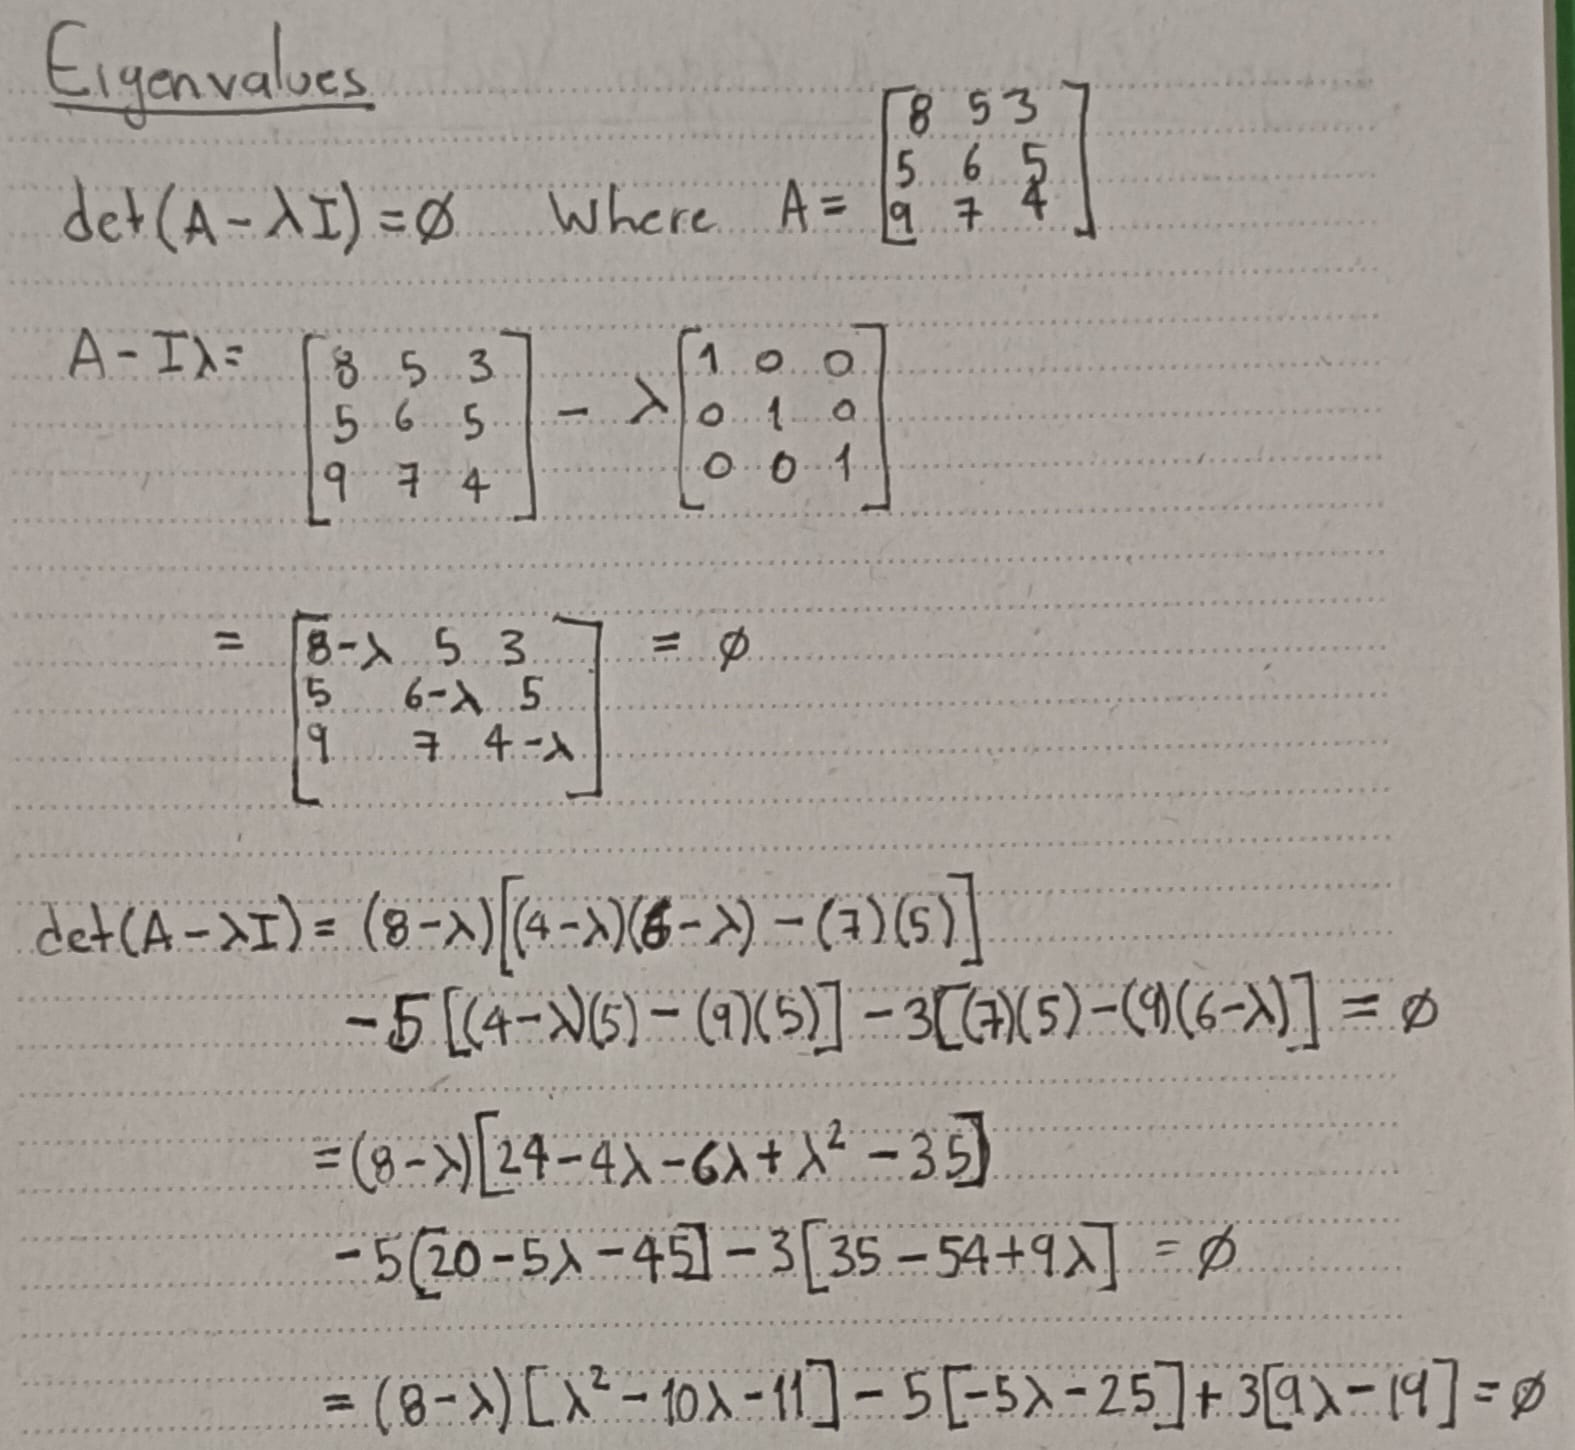 Eigenvalues
det(A-λI)=∅ Where A= [8 5 3
5 6 5
9 7 4]
A-Iλ= [8 5 3
5 6 5
9 7 4] - λ [1 0 0
0 1 0
0 0 1]
= [8-λ 5 3
5 6-λ 5
9 7 4-λ] = ∅
det(A-λI)= (8-λ)[(4-λ)(6-λ)-(7)(5)]
-5[(4-λ)(5)-(9)(5)]-3[(7)(5)-(9)(6-λ)]=∅
=(8-λ)[24-4λ-6λ+λ²-35]
-5[20-5λ-45]-3[35-54+9λ]=∅
=(8-λ)[λ²-10λ-11]-5[-5λ-25]+3[9λ-19]=∅